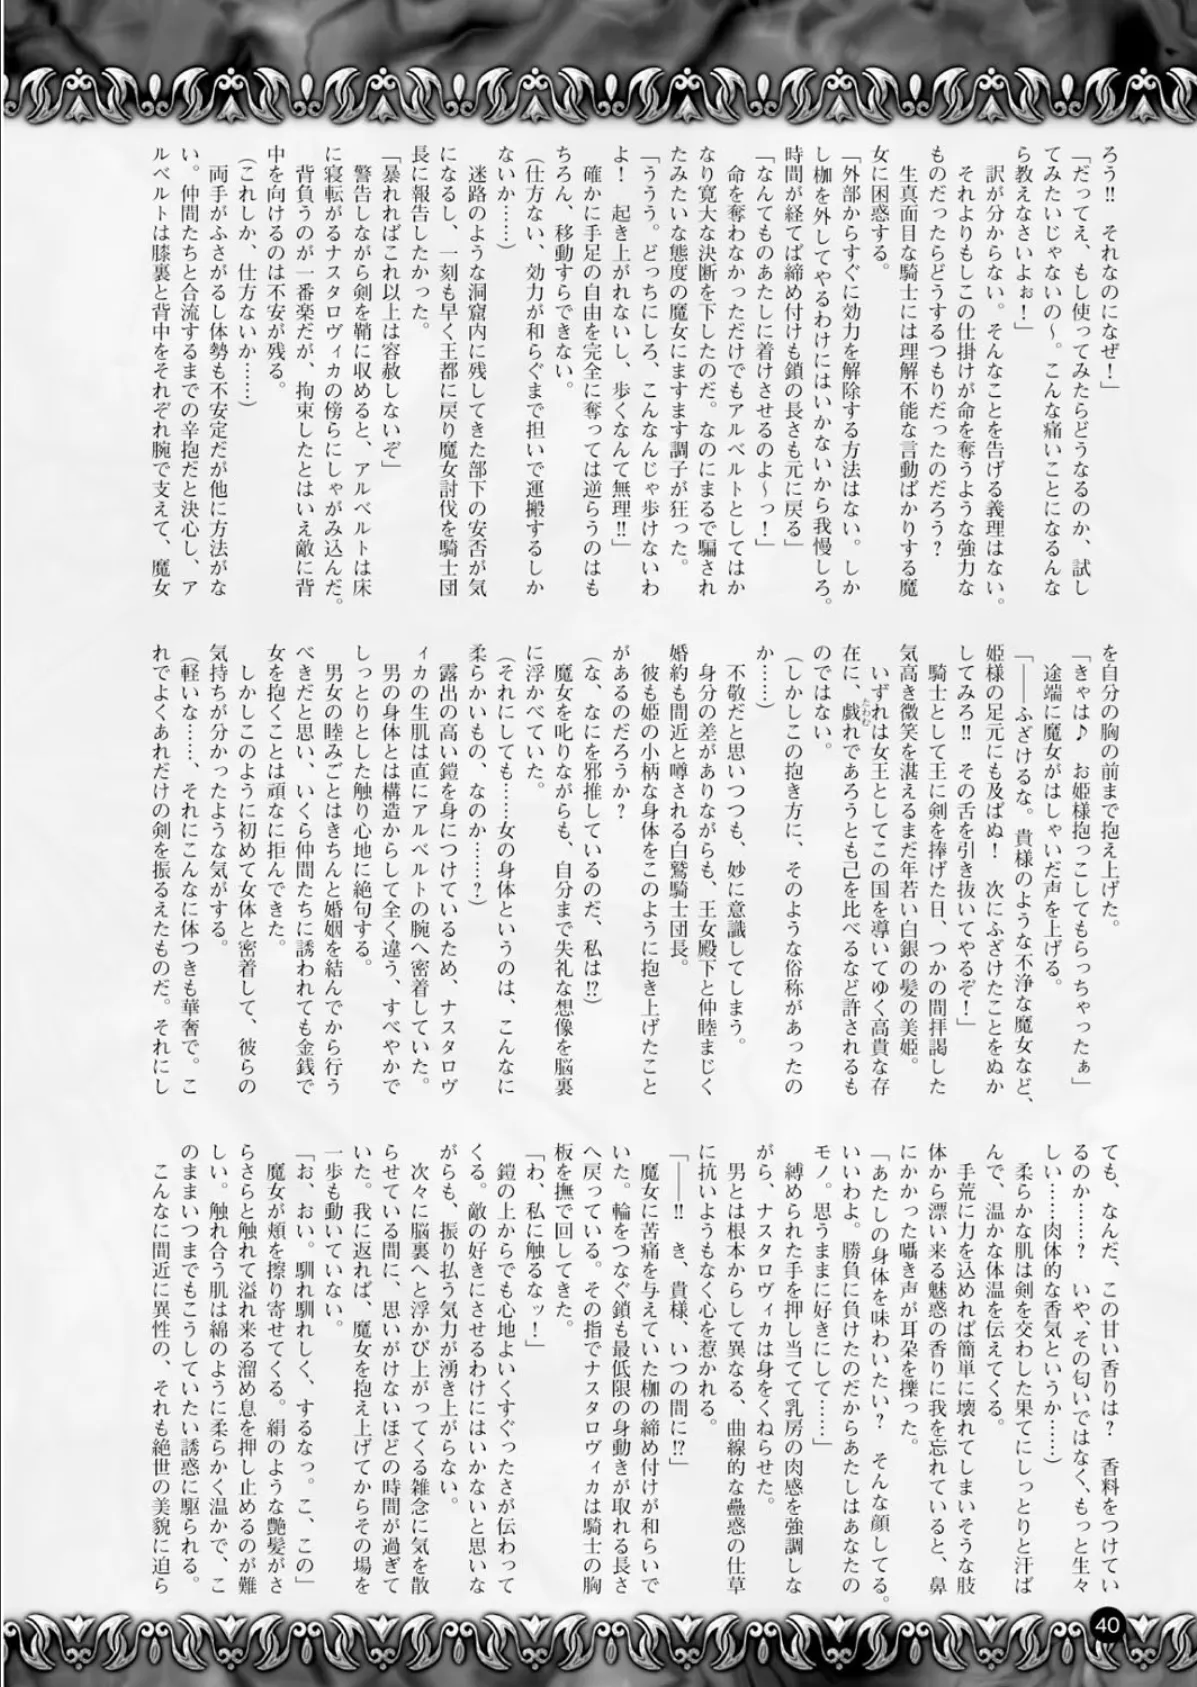 ろう!! それなのになぜ！」
「だってえ、もし使ってみたらどうなるのか、試し
てみたいじゃないの～。こんな痛いことになるんな
ら教えなさいよぉ！」
訳が分からない。そんなことを告げる義理はない。
それよりもしこの仕掛けが命を奪うような強力な
ものだったらどうするつもりだったのだろう？
生真面目な騎士には理解不能な言動ばかりする魔
女に困惑する。
「外部からすぐに効力を解除する方法はない。しか
し枷を外してやるわけにはいかないから我慢しろ。
時間が経てば締め付けも鎖の長さも元に戻る」
「なんてものあたしに着けさせるのよ～っ！」
命を奪わなかっただけでもアルベルトとしてはか
なり寛大な決断を下したのだ。なのにまるで騙され
たみたいな態度の魔女にますます調子が狂った。
「ううう。どっちにしろ、こんなんじゃ歩けないわ
よ！ 起き上がれないし、歩くなんて無理!!」
確かに手足の自由を完全に奪っては逆らうのはも
ちろん、移動すらできない。
（仕方ない、効力が和らぐまで担いで運搬するしか
ないか……）
迷路のような洞窟内に残してきた部下の安否が気
になるし、一刻も早く王都に戻り魔女討伐を騎士団
長に報告したかった。
「暴れればこれ以上は容赦しないぞ」
警告しながら剣を鞘に収めると、アルベルトは床
に寝転がるナスタロヴィカの傍らにしゃがみ込んだ。
背負うのが一番楽だが、拘束したとはいえ敵に背
中を向けるのは不安が残る。
（これしか、仕方ないか……）
両手がふさがるし体勢も不安定だが他に方法がな
い。仲間たちと合流するまでの辛抱だと決心し、ア
ルベルトは膝裏と背中をそれぞれ腕で支えて、魔女
を自分の胸の前まで抱え上げた。
「きゃは♪ お姫様抱っこしてもらっちゃったぁ」
途端に魔女がはしゃいだ声を上げる。
「――ふざけるな。貴様のような不浄な魔女など、
姫様の足元にも及ばぬ！ 次にふざけたことをぬか
してみろ!! その舌を引き抜いてやるぞ！」
騎士として王に剣を捧げた日、つかの間拝謁した
気高き微笑を湛えるまだ年若い白銀の髪の美姫。
いずれは女王としてこの国を導いてゆく高貴な存
在に、戯れであろうとも己を比べるなど許されるも
のではない。
（しかしこの抱き方に、そのような俗称があったの
か……）
不敬だと思いつつも、妙に意識してしまう。
身分の差がありながらも、王女殿下と仲睦まじく
婚約も間近と噂される白鷲騎士団長。
彼も姫の小柄な身体をこのように抱き上げたこと
があるのだろうか？
（な、なにを邪推しているのだ、私は!?）
魔女を叱りながらも、自分まで失礼な想像を脳裏
に浮かべていた。
（それにしても……女の身体というのは、こんなに
柔らかいもの、なのか……？）
露出の高い鎧を身につけているため、ナスタロヴ
ィカの生肌は直にアルベルトの腕へ密着していた。
男の身体とは構造からして全く違う、すべやかで
しっとりとした触り心地に絶句する。
男女の睦みごとはきちんと婚姻を結んでから行う
べきだと思い、いくら仲間たちに誘われても金銭で
女を抱くことは頑なに拒んできた。
しかしこのように初めて女体と密着して、彼らの
気持ちが分かったような気がする。
（軽いな……、それにこんなに体つきも華奢で。こ
れでよくあれだけの剣を振るえたものだ。それにし
ても、なんだ、この甘い香りは？ 香料をつけてい
るのか……？ いや、その匂いではなく、もっと生々
しい……肉体的な香気というか……）
柔らかな肌は剣を交わした果てにしっとりと汗ば
んで、温かな体温を伝えてくる。
手荒に力を込めれば簡単に壊れてしまいそうな肢
体から漂い来る魅惑の香りに我を忘れていると、鼻
にかかった囁き声が耳朶を擽った。
「あたしの身体を味わいたい？ そんな顔してる。
いいわよ。勝負に負けたのだからあたしはあなたの
モノ。思うままに好きにして……」
縛められた手を押し当てて乳房の肉感を強調しな
がら、ナスタロヴィカは身をくねらせた。
男とは根本からして異なる、曲線的な蠱惑の仕草
に抗いようもなく心を惹かれる。
「――!! き、貴様、いつの間に!?」
魔女に苦痛を与えていた枷の締め付けが和らいで
いた。輪をつなぐ鎖も最低限の身動きが取れる長さ
へ戻っている。その指でナスタロヴィカは騎士の胸
板を撫で回してきた。
「わ、私に触るなッ！」
鎧の上からでも心地よいくすぐったさが伝わって
くる。敵の好きにさせるわけにはいかないと思いな
がらも、振り払う気力が湧き上がらない。
次々に脳裏へと浮かび上がってくる雑念に気を散
らせている間に、思いがけないほどの時間が過ぎて
いた。我に返れば、魔女を抱え上げてからその場を
一歩も動いていない。
「お、おい。馴れ馴れしく、するなっ。こ、この」
魔女が頬を擦り寄せてくる。絹のような艶髪がさ
らさらと触れて溢れ来る溜め息を押し止めるのが難
しい。触れ合う肌は綿のように柔らかく温かで、こ
のままいつまでもこうしていたい誘惑に駆られる。
こんなに間近に異性の、それも絶世の美貌に迫ら
40